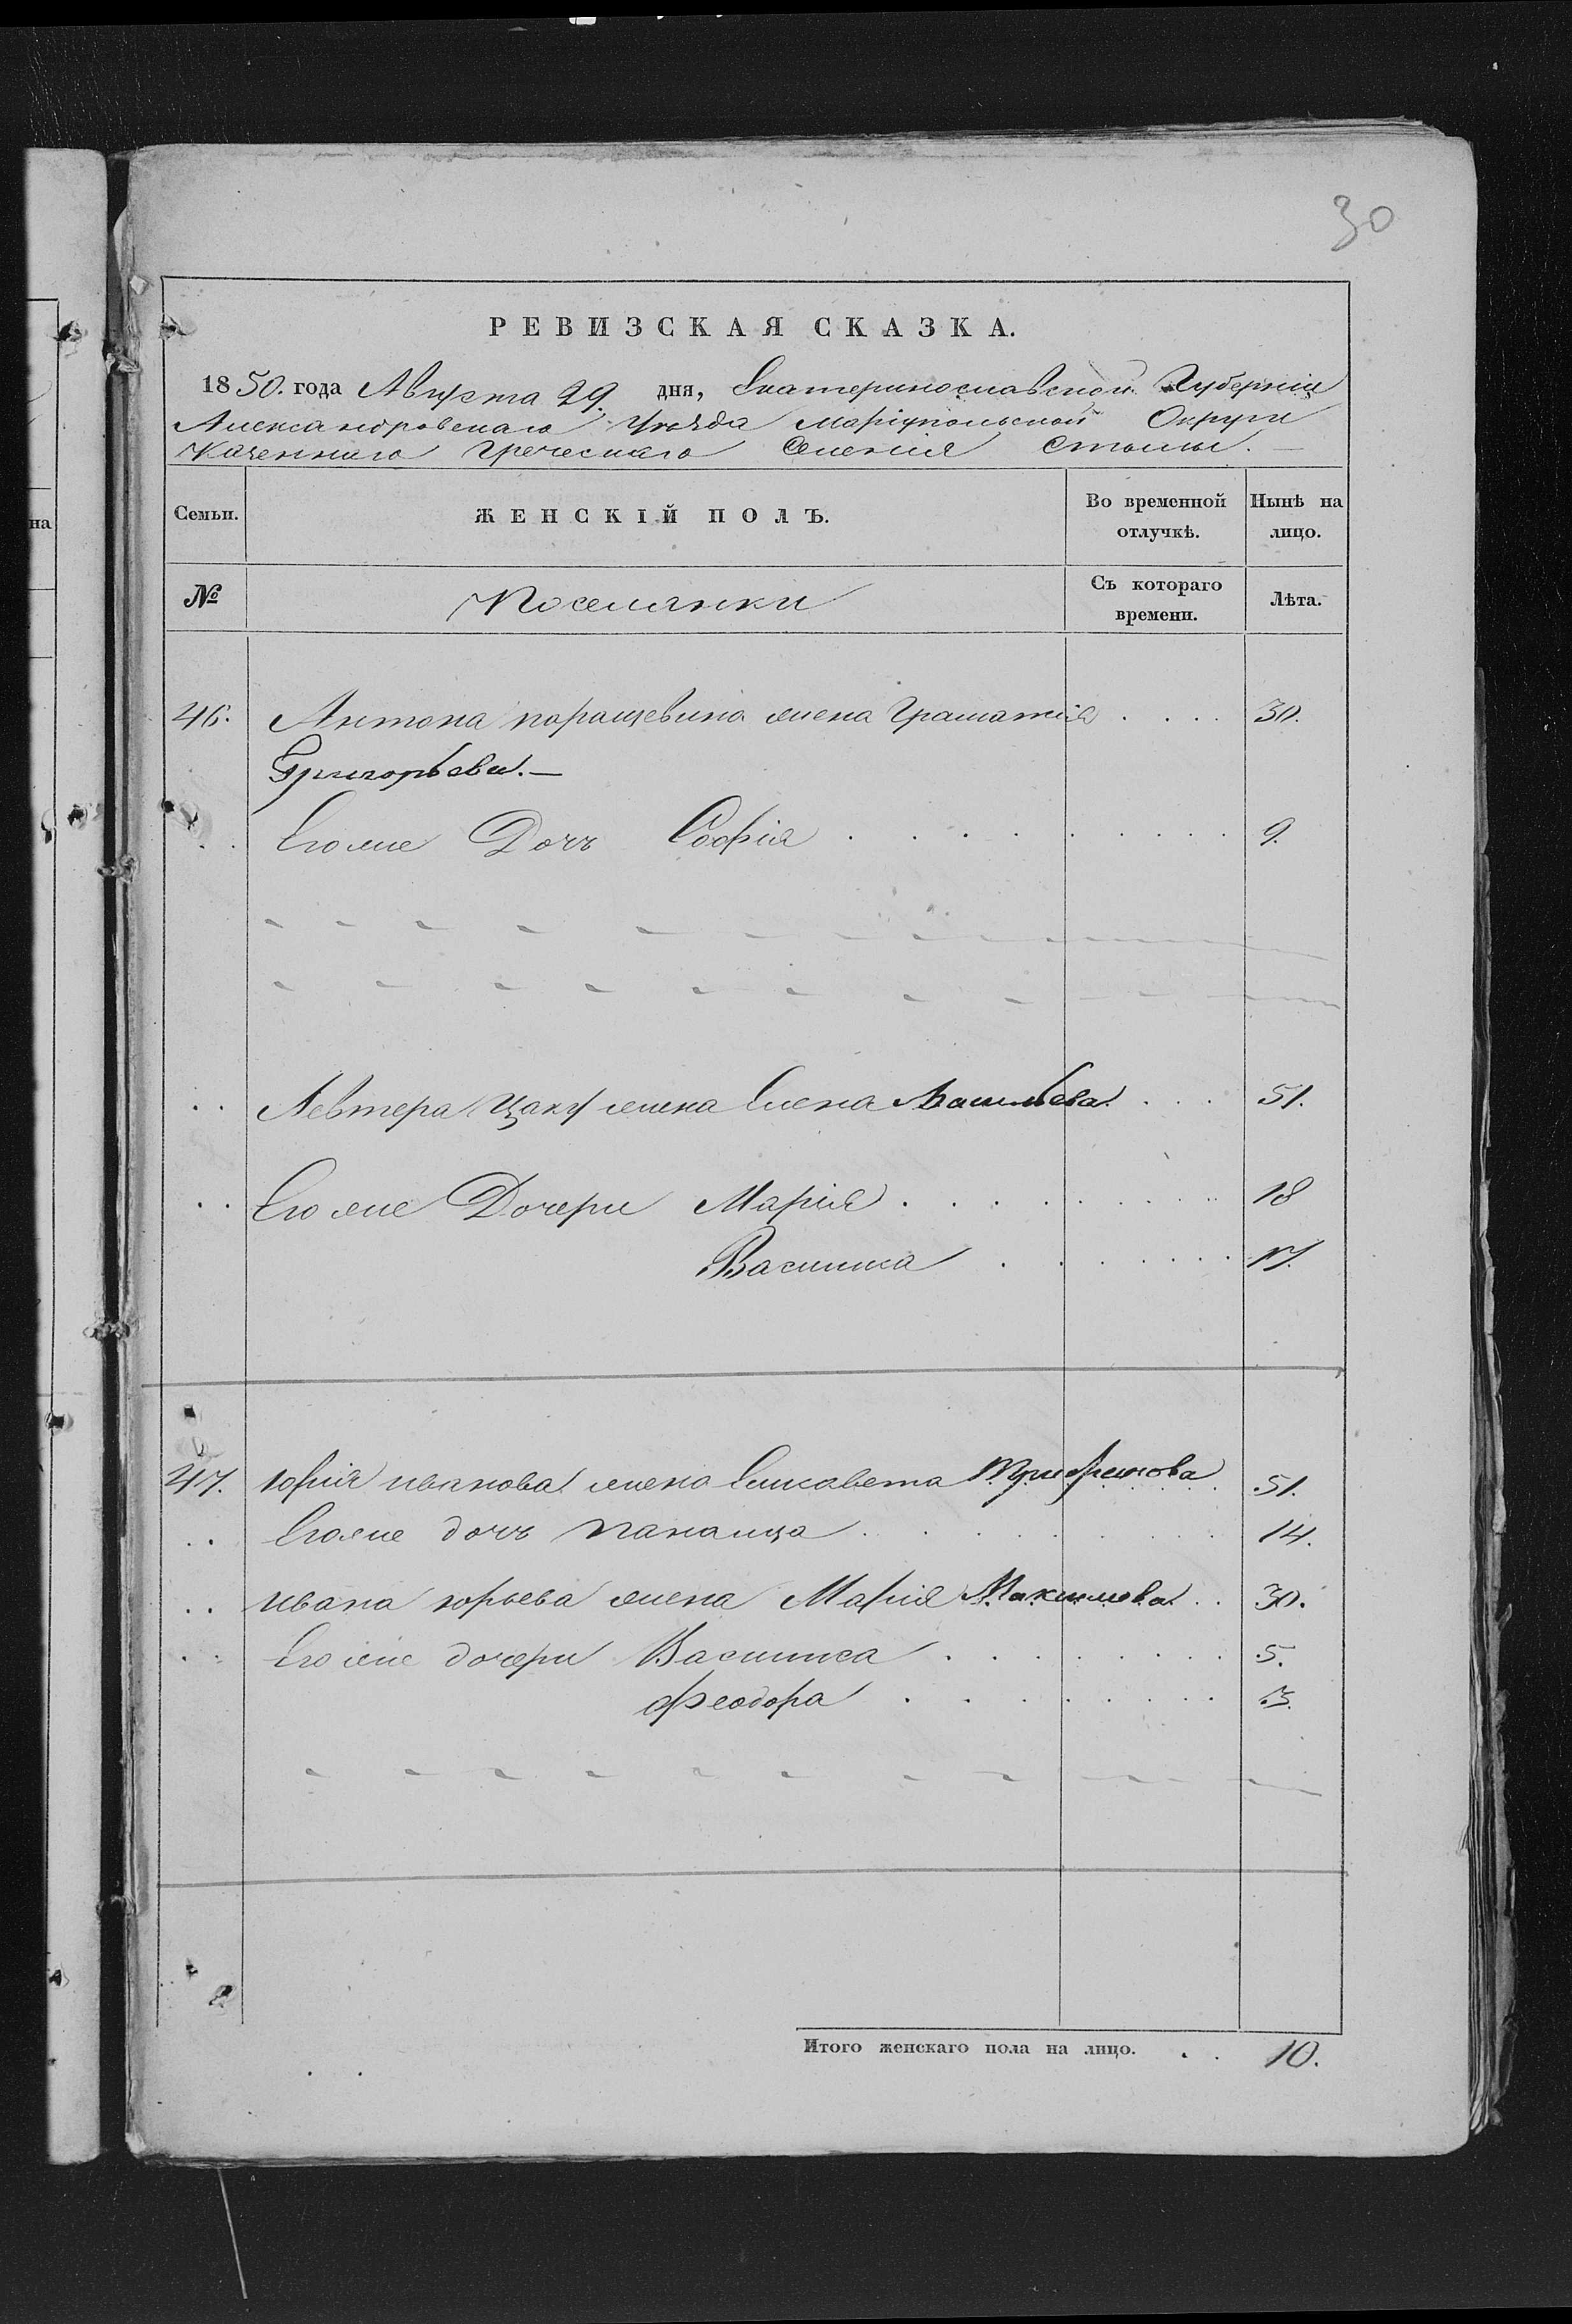 30
РЕВИЗСКАЯ СКАЗКА.
1850. года Августа 29. дня, Екатеринославской Губерніи
Александровскаго Уѣзда Маріупольской Округи
Казеннаго Греческаго Селенія Стылы. —
Семьи. ЖЕНСКІЙ ПОЛЪ. Во временной отлучкѣ. Нынѣ на лицо.
№ Поселянки Съ котораго времени. Лѣта.
46. Антона жена 30.
Григорьева. —
Его же Дочь Софія 9.
Левтера Цаку жена Елена Васильева 51.
Его же Дочери Марія 18
Василиса 17.
47. Юрія иванова жена Елисавета Трифонова 51.
Его же дочь 14.
ивана юрьева жена Марія Максимова 30.
Его же дочери Василиса 5.
Феодора 3.
Итого женскаго пола на лицо. 10.
на